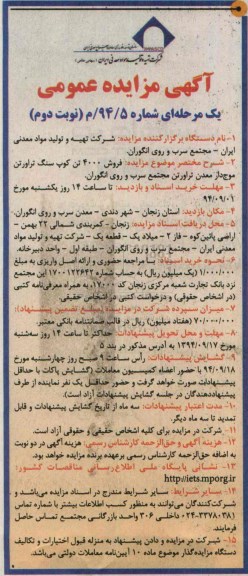 شرکت تهیه و تولید مواد معدنی ایران
آگهی مزایده عمومی
یک مرحله‌ای شماره ۹۴/۵/م (نوبت دوم)
۱-نام دستگاه برگزارکننده مزایده: شرکت تهیه و تولید مواد معدنی
ایران - مجتمع سرب و روی انگوران.
۲- شرح مختصر موضوع مزایده: فروش ۴۰۰۰ تن کوپ سنگ تراورتن
موج‌دار معدن تراورتن مجتمع سرب و روی انگوران.
۳- مهلت خرید اسناد و بازدید: تا ساعت ۱۴ روز یکشنبه مورخ
۹۴/۰۹/۰۱
۴- مکان بازدید: استان زنجان - شهر دندی - معدن سرب و روی انگوران.
۵- محل دریافت اسناد مزایده: زنجان - کمربندی شمالی ۲۲ بهمن -
اراضی پائین‌کوه - فاز ۲ - میلاد یک - قطعه یک - شرکت تهیه و تولید مواد
معدنی ایران - مجتمع سرب و روی انگوران - طبقه اول - واحد دبیرخانه
۶- نحوه خرید اسناد: با مراجعه حضوری و ارائه اصل واریزی به مبلغ
۱/۰۰۰/۰۰۰ (یک میلیون ریال) به حساب شماره ۱۷۰۰۱۲۲۶۴۲ این مجتمع
نزد بانک تجارت شعبه مرکزی زنجان کد ۱۷۰۰، به همراه معرفی‌نامه کتبی
(در اشخاص حقوقی) و درخواست کتبی در اشخاص حقیقی.
۷- میزان سپرده شرکت در مزایده (مبلغ تضمین پیشنهاد):
۷۰/۰۰۰/۰۰۰ (هفتاد میلیون) ریال در قالب ضمانتنامه بانکی معتبر.
۸- مهلت و محل تحویل پیشنهادات: حداکثر تا ساعت ۱۴ روز سه‌شنبه
مورخ ۱۳۹۴/۰۹/۱۷ به آدرس مذکور در بند ۵
۹- گشایش پیشنهادات: رأس ساعت ۹ صبح روز چهارشنبه مورخ
۹۴/۰۹/۱۸ با حضور اعضاء کمیسیون معاملات (گشایش پاکات با حداقل
پیشنهادات صورت خواهد گرفت و حضور حداقل یک نفر نماینده از طرف
پیشنهاددهندگان در جلسه گشایش پیشنهادات آزاد است).
۱۰- مدت اعتبار پیشنهادات: سه ماه از تاریخ گشایش پیشنهادات و قابل
تمدید تا سه ماه دیگر.
۱۱- شرکت در مزایده برای کلیه اشخاص حقیقی و حقوقی آزاد است.
۱۲- هزینه آگهی و حق‌الزحمه کارشناس رسمی: هزینه آگهی در دو نوبت
به اضافه حق‌الزحمه کارشناس رسمی برعهده برنده مزایده خواهد بود.
۱۳- نشانی پایگاه ملی اطلاع‌رسانی مناقصات کشور:
http://iets.mporg.ir
۱۴- سایر شرایط: سایر شرایط مندرج در اسناد مزایده می‌باشد و
شرکت‌کنندگان می‌توانند به منظور کسب اطلاعات بیشتر با شماره تماس
۰۲۴-۳۳۷۷۰۳۸۱ داخلی ۳۰۶ واحد بازرگانی مجتمع تماس حاصل
فرمایند.
۱۵- شرکت در مزایده و دادن پیشنهاد به منزله قبول اختیارات و تکالیف
دستگاه مزایده‌گذار موضوع ماده ۱۰ آیین‌نامه معاملات دولتی می‌باشد.